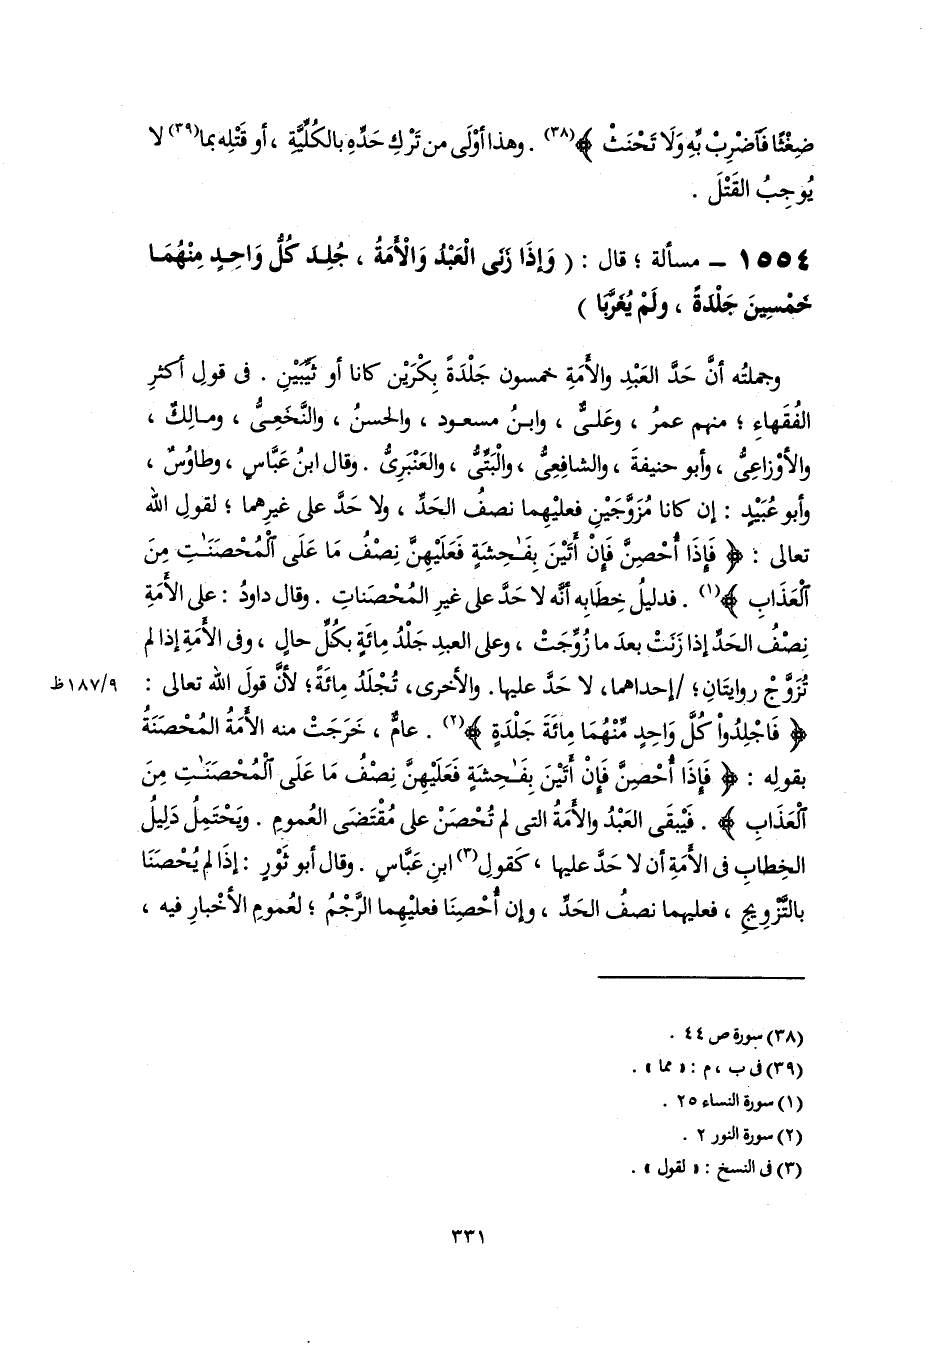 ضِغْثًا فَآضْرِبْ بِّهِ وَلَا تَحْنَثْ ﴾(٣٨) . وهذا أوْلَى من تَرْكِ حَدِّه بالكُلِّيَّةِ ، أو قَتْلِه بما(٣٩) لا
يُوجِبُ القَتْلَ .
١٥٥٤ – مسألة ؛ قال : ( وَإِذَا زَنَى الْعَبْدُ وَالْأَمَةُ ، جُلِدَ كُلُّ وَاحِدٍ مِنْهُمَا
خَمْسِينَ جَلْدَةً ، ولَمْ يُغَرَّبَا )
وجملتُه أنَّ حَدَّ العَبْدِ والأَمَةِ خمسون جَلْدَةً بِكْرَيْن كانا أو ثَيِّبَيْنِ . فى قولِ أكثرِ
الفُقَهاءِ ؛ منهم عمرُ ، وعَلىٌّ ، وابنُ مسعود ، والحسنُ ، والنَّخَعِىُّ ، ومالِكٌ ،
والأوْزاعِىُّ ، وأبو حنيفةَ ، والشافعِىُّ ، والْبَتِّىُّ ، والعَنْبَرِىُّ . وقال ابنُ عَبَّاسٍ ، وطاوُسٌ ،
وأبو عُبَيْدٍ : إن كانا مُزَوَّجَيْنِ فعليْهما نصفُ الحَدِّ ، ولا حَدَّ على غيرِهما ؛ لقولِ الله
تعالى : ﴿ فَإِذَا أُحْصِنَّ فَإِنْ أَتَيْنَ بِفَـٰحِشَةٍ فَعَلَيْهِنَّ نِصْفُ مَا عَلَى ٱلْمُحْصَنَـٰتِ مِنَ
ٱلْعَذَابِ ﴾(١) . فدليلُ خِطَابِه أنَّه لا حَدَّ على غيرِ المُحْصَناتِ . وقال داودُ : على الأَمَةِ
نِصْفُ الحَدِّ إذا زَنَتْ بعدَ ما زُوِّجَتْ ، وعلى العبدِ جَلْدُ مِائَةٍ بكُلِّ حالٍ ، وفى الأَمَةِ إذا لم
تُزَوَّجْ روايتَانِ ؛ /إحداهما، لا حَدَّ عليها. والأخرى، تُجْلَدُ مِائَةً؛ لأنَّ قولَ الله تعالى : ١٨٧/٩ظ
﴿ فَاجْلِدُواْ كُلَّ وَاحِدٍ مِّنْهُمَا مِائَةَ جَلْدَةٍ ﴾(٢) . عامٌّ ، خَرَجَتْ منه الأَمَةُ المُحْصَنَةُ
بقولِه : ﴿ فَإِذَا أُحْصِنَّ فَإِنْ أَتَيْنَ بِفَـٰحِشَةٍ فَعَلَيْهِنَّ نِصْفُ مَا عَلَى ٱلْمُحْصَنَـٰتِ مِنَ
ٱلْعَذَابِ ﴾ . فَيْبقَى العَبْدُ والأَمَةُ التى لم تُحْصَنْ على مُقْتَضَى العُمومِ . ويَحْتَمِلُ دَلِيلُ
الخِطابِ فى الأَمَةِ أن لا حَدَّ عليها ، كَقولِ(٣) ابنِ عَبَّاسٍ . وقال أبو ثَوْرٍ : إذا لم يُحْصَنَا
بالتَّزْوِيجِ ، فعليهما نصفُ الحَدِّ ، وإن أُحْصِنَا فعليْهِما الرَّجْمُ ؛ لعُمومِ الأخْبارِ فيه ،
(٣٨) سورة ص ٤٤ .
(٣٩) فى ب ، م : « مما » .
(١) سورة النساء ٢٥ .
(٢) سورة النور ٢ .
(٣) فى النسخ : « لقول » .
٣٣١